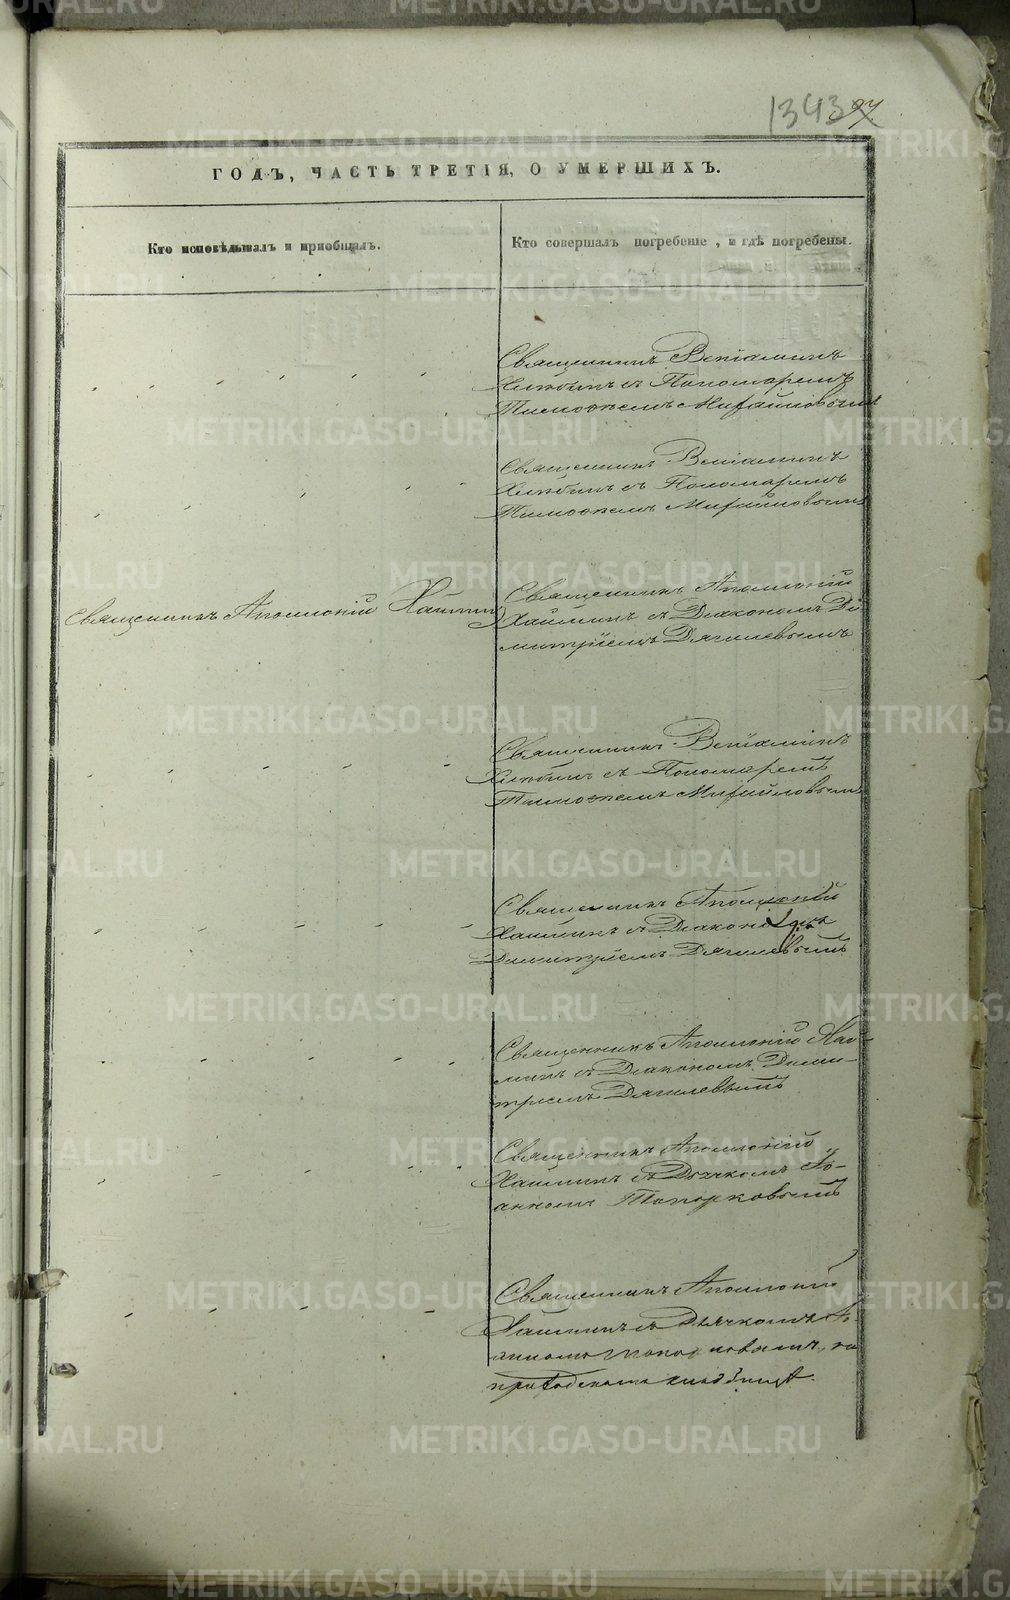 1343 97
ГОДЪ, ЧАСТЬ ТРЕТІЯ, О УМЕРШИХЪ.
Кто исповѣдывалъ и пріобщалъ.
Кто совершалъ погребеніе, и гдѣ погребены.
Священникъ Веніаминъ
Хлѣбинъ съ Пономаремъ
Тимоѳеемъ Михайловымъ
Священникъ Веніаминъ
Хлѣбинъ съ Пономаремъ
Тимоѳеемъ Михайловымъ
Священникъ Аполлоній
Священникъ Аполлоній
съ Діакономъ Ди
митріемъ Дягилевымъ
Священникъ Веніаминъ
Хлѣбинъ съ Пономаремъ
Тимоѳеемъ Михайловымъ
Священникъ Аполлоній
съ Діакономъ
Димитріемъ Дягилевымъ
Священникъ Аполлоній
съ Діакономъ Дими-
тріемъ Дягилевымъ
Священникъ Аполлоній
съ Дьячкомъ Іо-
анномъ Топорковымъ
Священникъ Аполлоній
съ Дьячкомъ Іо-
анномъ на
приходскомъ кладбищѣ.
METRIKI.GASO-URAL.RU